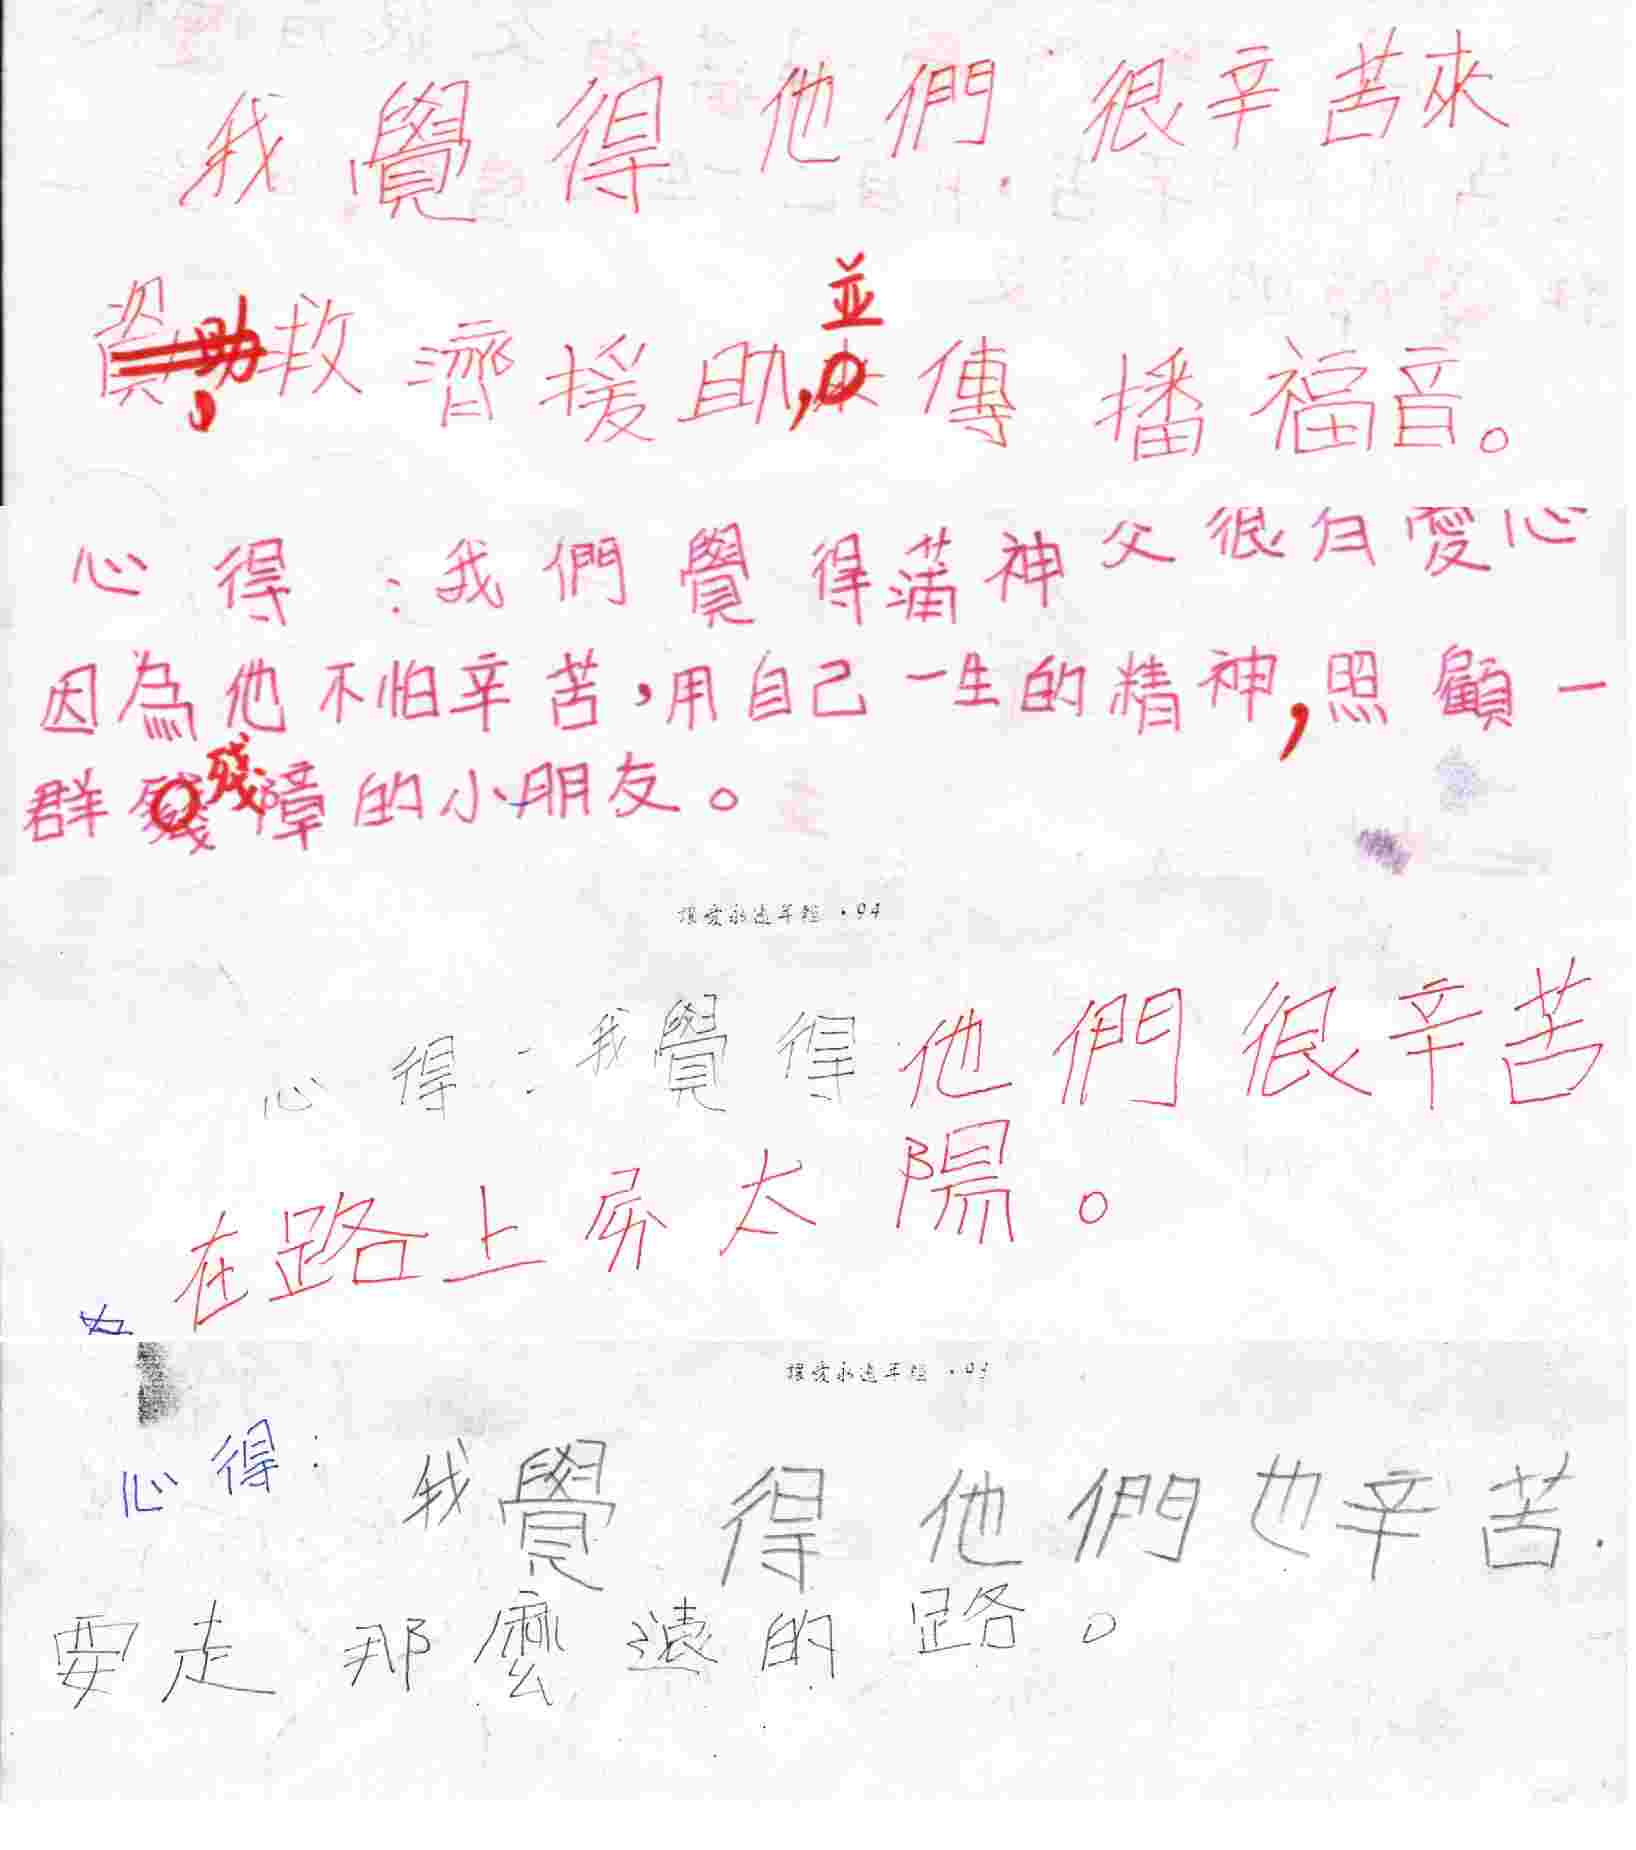 我覺得他們很辛苦來
資助，救濟援助，並傳播福音。
心得：我們覺得蒲神父很有愛心
因為他不怕辛苦，用自己一生的精神，照顧一
群殘障的小朋友。
讓愛永遠年輕 · 94
心得：我覺得他們很辛苦
在路上太陽。
讓愛永遠年輕 · 93
心得：我覺得他們也辛苦
要走那麼遠的路。